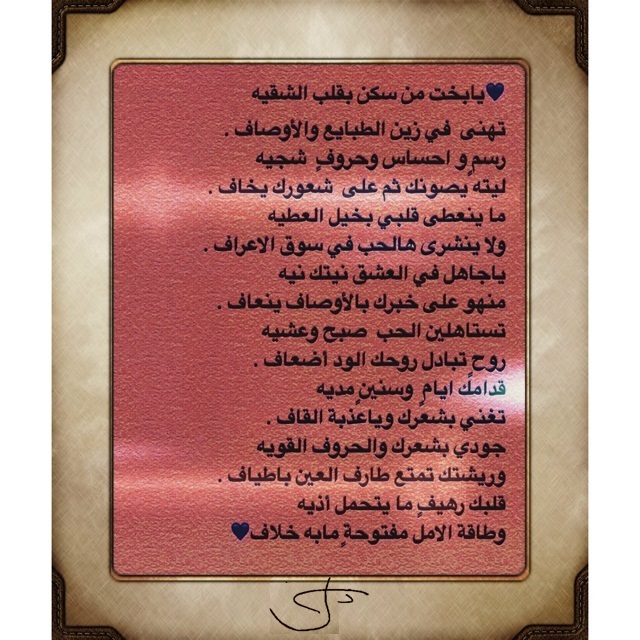 💙يابخت من سكن بقلب الشقيه
تهنى في زين الطبايع والأوصاف .
رسمٍ و احساس وحروفٍ شجيه
ليته يصونك ثم على شعورك يخاف .
ما ينعطى قلبي بخيل العطيه
ولا ينشرى هالحب في سوق الاعراف .
ياجاهل في العشق نيتك نيه
منهو على خبرك بالأوصاف ينعاف .
تستاهلين الحب صبح وعشيه
روحٍ تبادل روحك الود أضعاف .
قدامك ايامٍ وسنينٍ مديه
تغني بشعرك وياعذبة القاف .
جودي بشعرك والحروف القويه
وريشتك تمتع طارف العين باطياف .
قلبك رهيفٍ ما يتحمل أذيه
وطاقة الامل مفتوحةٍ مابه خلاف💙